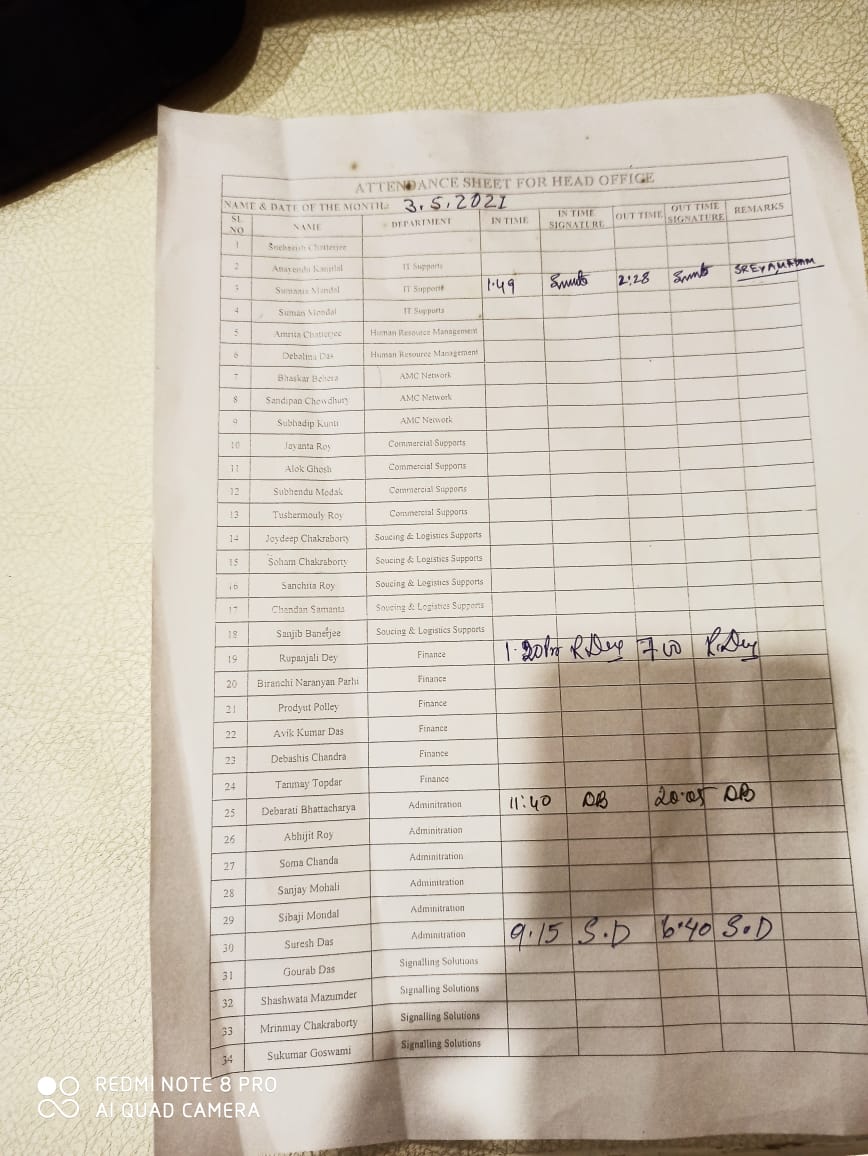 ATTENDANCE SHEET FOR HEAD OFFICE
NAME & DATE OF THE MONTH: 3.5.2021
SL NO NAME DEPARTMENT IN TIME IN TIME SIGNATURE OUT TIME OUT TIME SIGNATURE REMARKS
1 Chatterjee
2 IT Supports
3 Sumanta Mondal IT Supports 1.49 2:28 SREYA MADAM
4 Suman Mondal IT Supports
5 Amrita Chatterjee Human Resource Management
6 Debalina Das Human Resource Management
7 Bhaskar Behera AMC Network
8 Sandipan Chowdhury AMC Network
9 Subhadip Kunti AMC Network
10 Jayanta Roy Commercial Supports
11 Alok Ghosh Commercial Supports
12 Subhendu Modak Commercial Supports
13 Tushermouly Roy Commercial Supports
14 Joydeep Chakraborty Soucing & Logistics Supports
15 Soham Chakraborty Soucing & Logistics Supports
16 Sanchita Roy Soucing & Logistics Supports
17 Chandan Samanta Soucing & Logistics Supports
18 Sanjib Banerjee Soucing & Logistics Supports
19 Rupanjali Dey Finance R.Dey 7.00 R.Dey
20 Biranchi Naranyan Parhi Finance
21 Prodyut Polley Finance
22 Avik Kumar Das Finance
23 Debashis Chandra Finance
24 Tanmay Topdar Finance
25 Debarati Bhattacharya Adminitration 11:40 DB 20.05 DB
26 Abhijit Roy Adminitration
27 Soma Chanda Adminitration
28 Sanjay Mohali Adminitration
29 Sibaji Mondal Adminitration
30 Suresh Das Adminitration 9.15 S.D 6.40 S.D
31 Gourab Das Signalling Solutions
32 Shashwata Mazumder Signalling Solutions
33 Mrinmay Chakraborty Signalling Solutions
34 Sukumar Goswami Signalling Solutions
REDMI NOTE 8 PRO
AI QUAD CAMERA